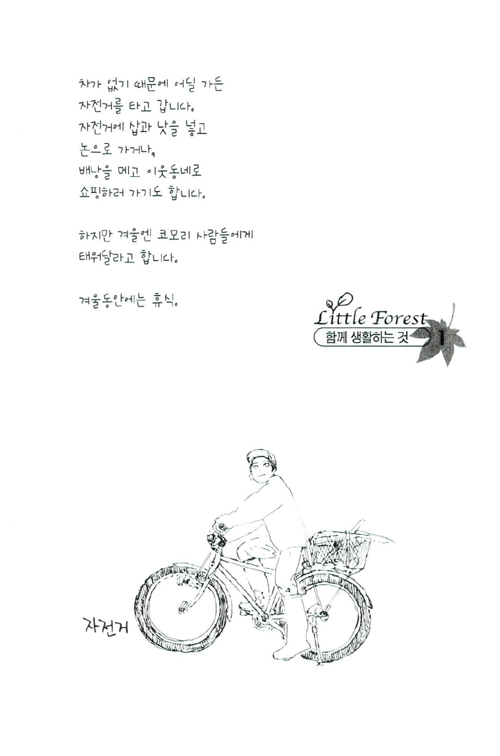 차가 없기 때문에 어딜 가든
자전거를 타고 갑니다.
자전거에 삽과 낫을 넣고
논으로 가거나,
배낭을 메고 이웃동네로
쇼핑하러 가기도 합니다.
하지만 겨울엔 코모리 사람들에게
태워달라고 합니다.
겨울동안에는 휴식.
Little Forest
함께 생활하는 것 1
자전거